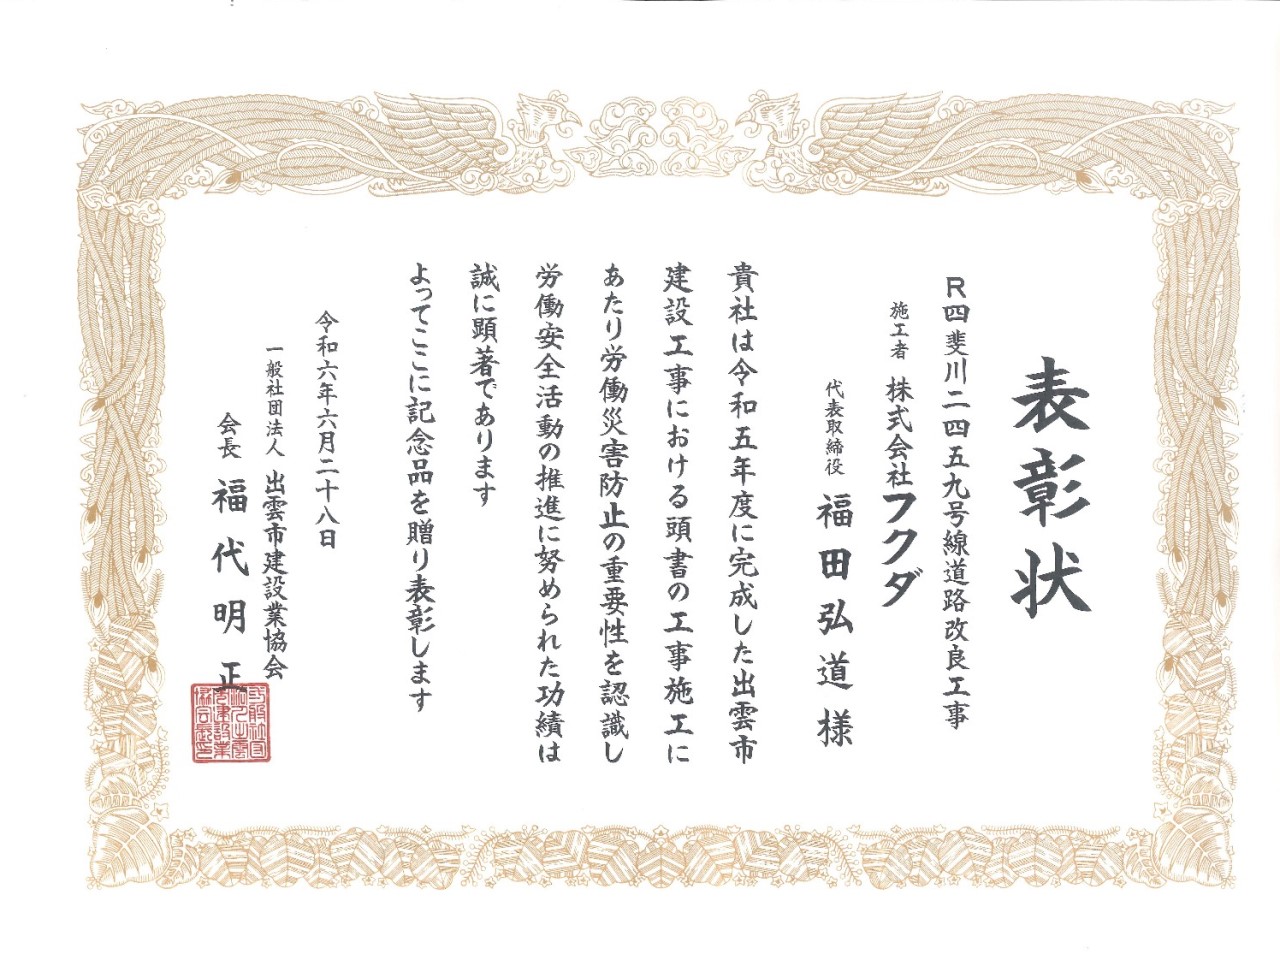 表彰状
R四斐川二四五九号線道路改良工事
施工者 株式会社フクダ
代表取締役 福田弘道様
貴社は令和五年度に完成した出雲市
建設工事における頭書の工事施工に
あたり労働災害防止の重要性を認識し
労働安全活動の推進に努められた功績は
誠に顕著であります
よってここに記念品を贈り表彰します
令和六年六月二十八日
一般社団法人 出雲市建設業協会
会長 福代明正
一般社団
法人出雲
市建設業
協会長印